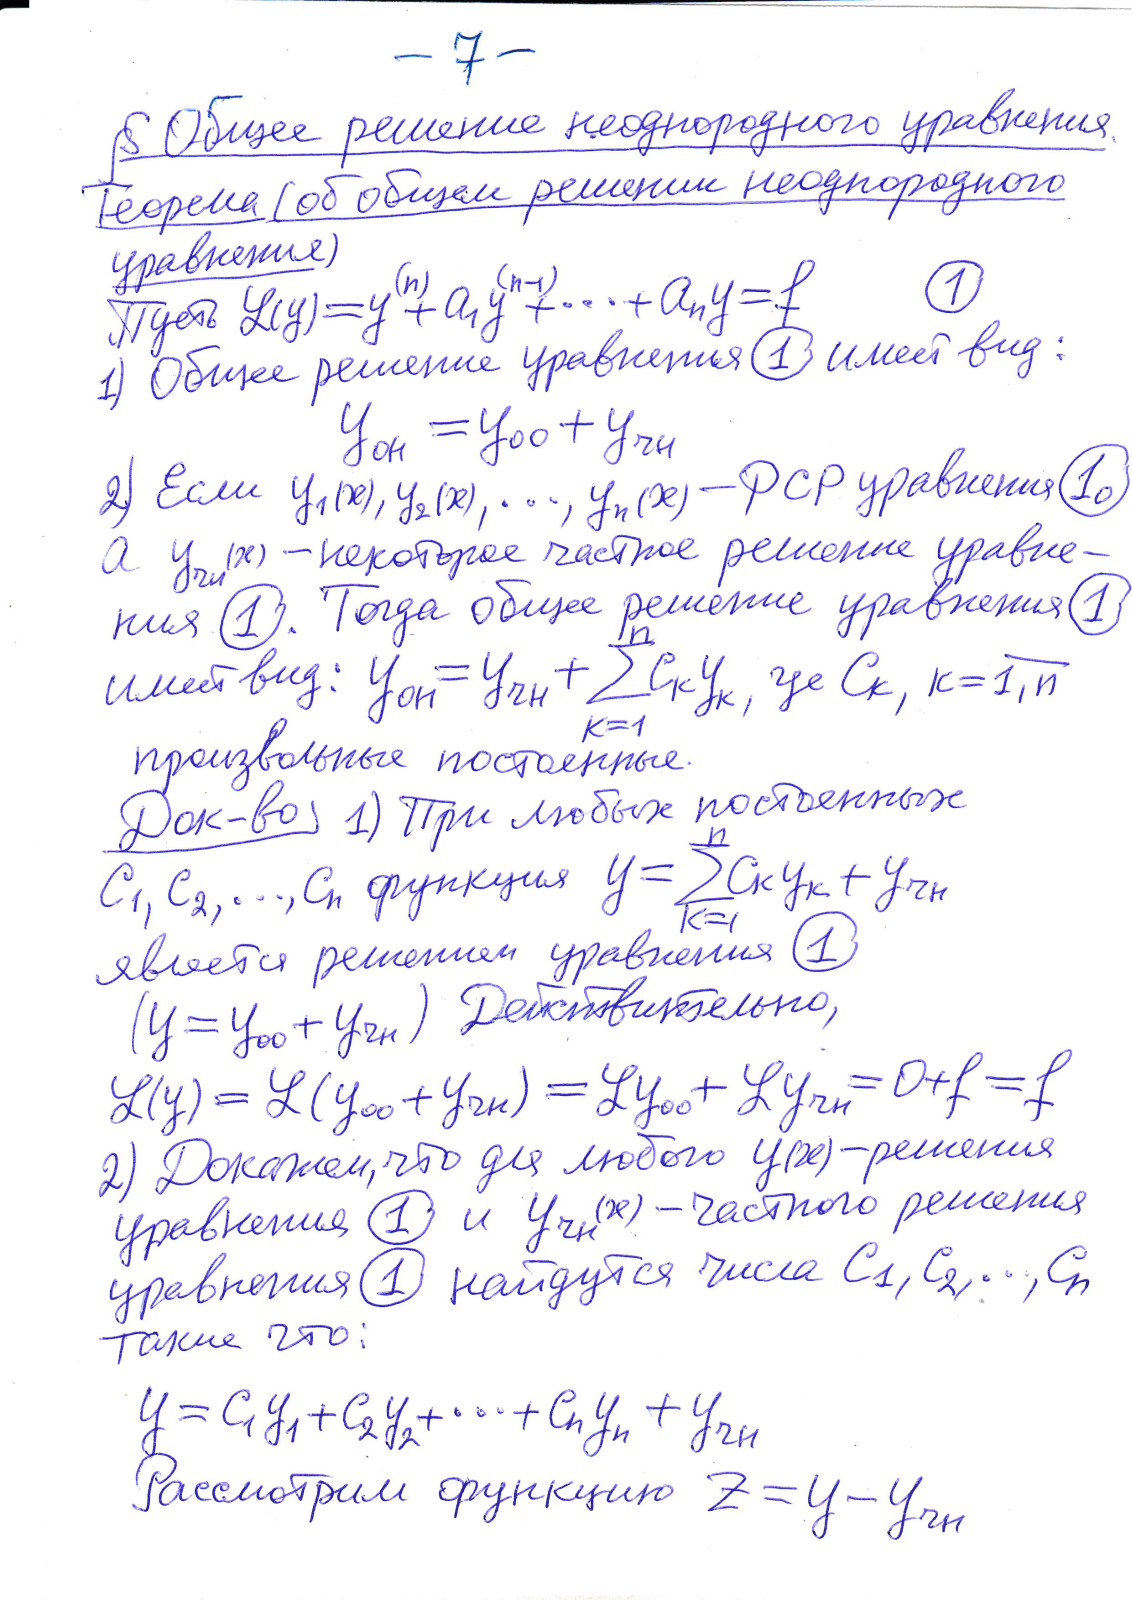 – 7 –
§ Общее решение неоднородного уравнения.
Теорема (об общем решении неоднородного
уравнения)
Пусть ℒ(y) = y⁽ⁿ⁾ + a₁y⁽ⁿ⁻¹⁾ + ... + aₙy = f ①
1) Общее решение уравнения ① имеет вид:
y_он = y_оо + y_чн
2) Если y₁(x), y₂(x), ..., yₙ(x) – ФСР уравнения ①₀
а y_чн(x) – некоторое частное решение уравне–
ния ①. Тогда общее решение уравнения ①
имеет вид: y_он = y_чн + ∑_{k=1}^{n} C_k y_k, где C_k, k = \overline{1,n}
произвольные постоянные.
Док–во 1) При любых постоянных
C₁, C₂, ..., Cₙ функция y = ∑_{k=1}^{n} C_k y_k + y_чн
является решением уравнения ①
(y = y_оо + y_чн) Действительно,
ℒ(y) = ℒ(y_оо + y_чн) = ℒy_оо + ℒy_чн = 0 + f = f
2) Докажем, что для любого y(x) – решения
уравнения ① и y_чн(x) – частного решения
уравнения ① найдутся числа C₁, C₂, ..., Cₙ
такие что:
y = C₁y₁ + C₂y₂ + ... + Cₙyₙ + y_чн
Рассмотрим функцию Z = y – y_чн